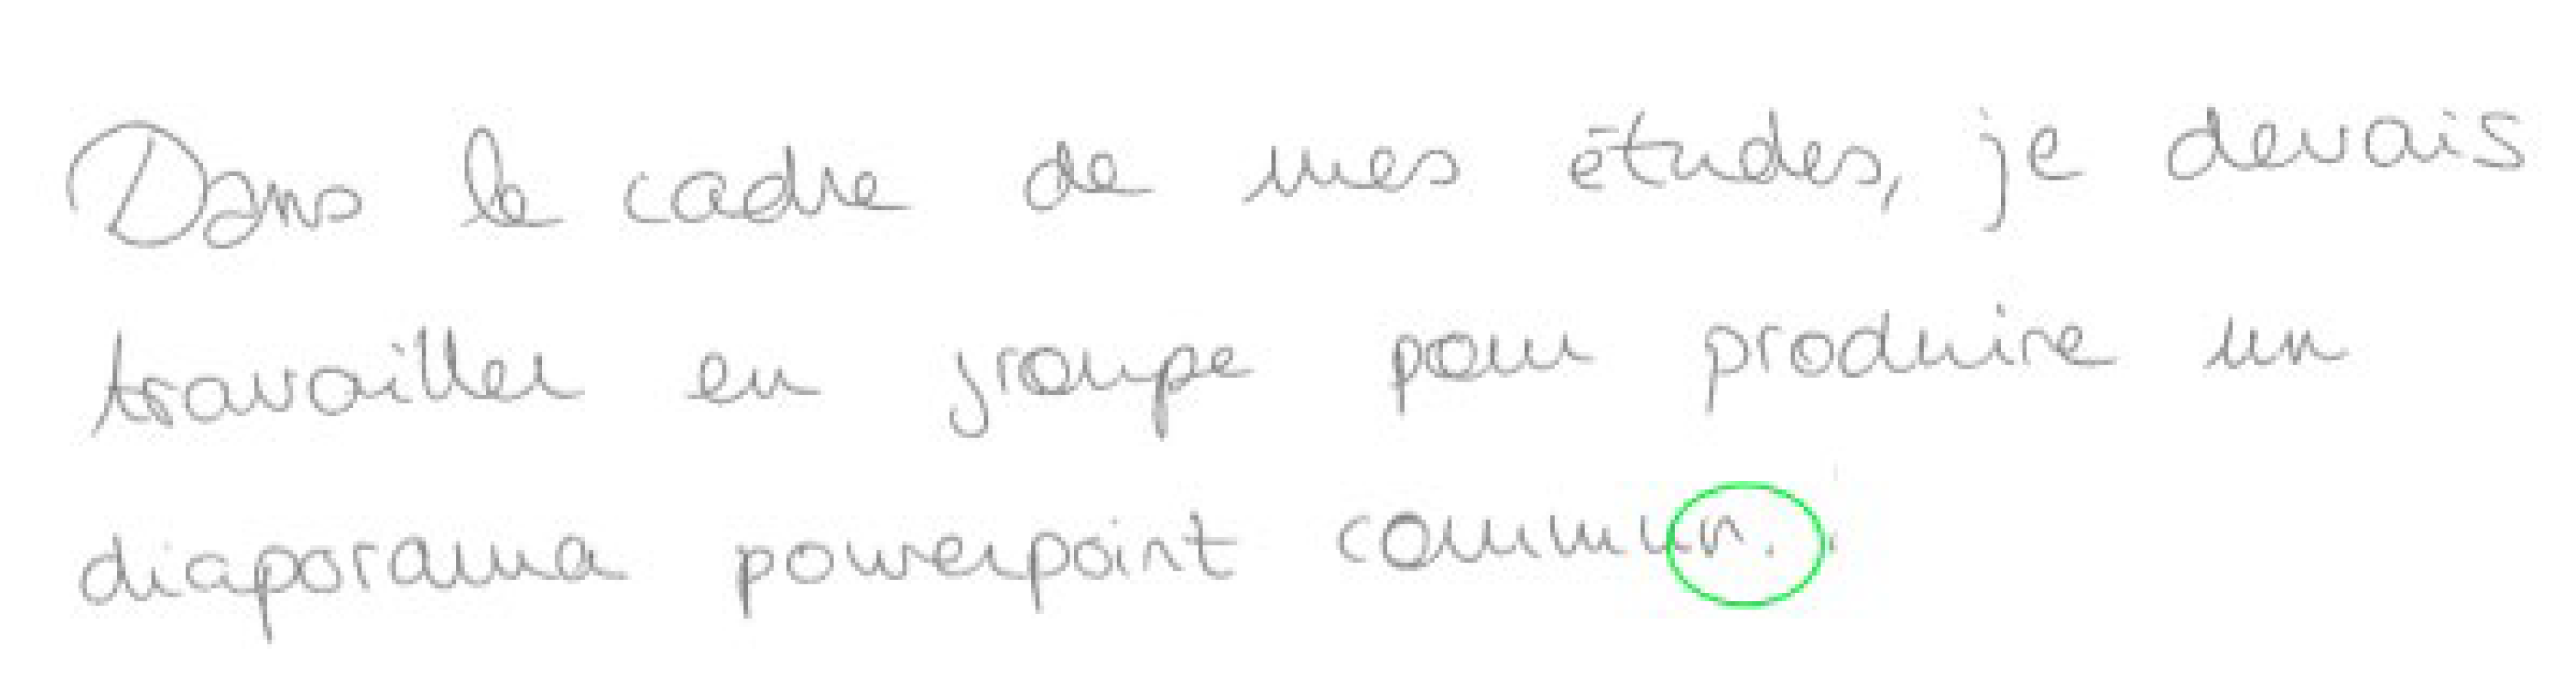 Dans le cadre de mes études, je devais
travailler en groupe pour produire un
diaporama powerpoint commun.